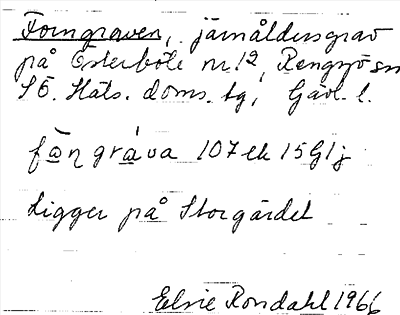 Forngraven, järnåldersgrav
på Österböle nr 12, Rengsjö sn
SÖ. Häls. doms. tg, Gävl. l.
fàngráva 107 ek 15G1j
Ligger på Storgärdet
Elsie Rondahl 1966